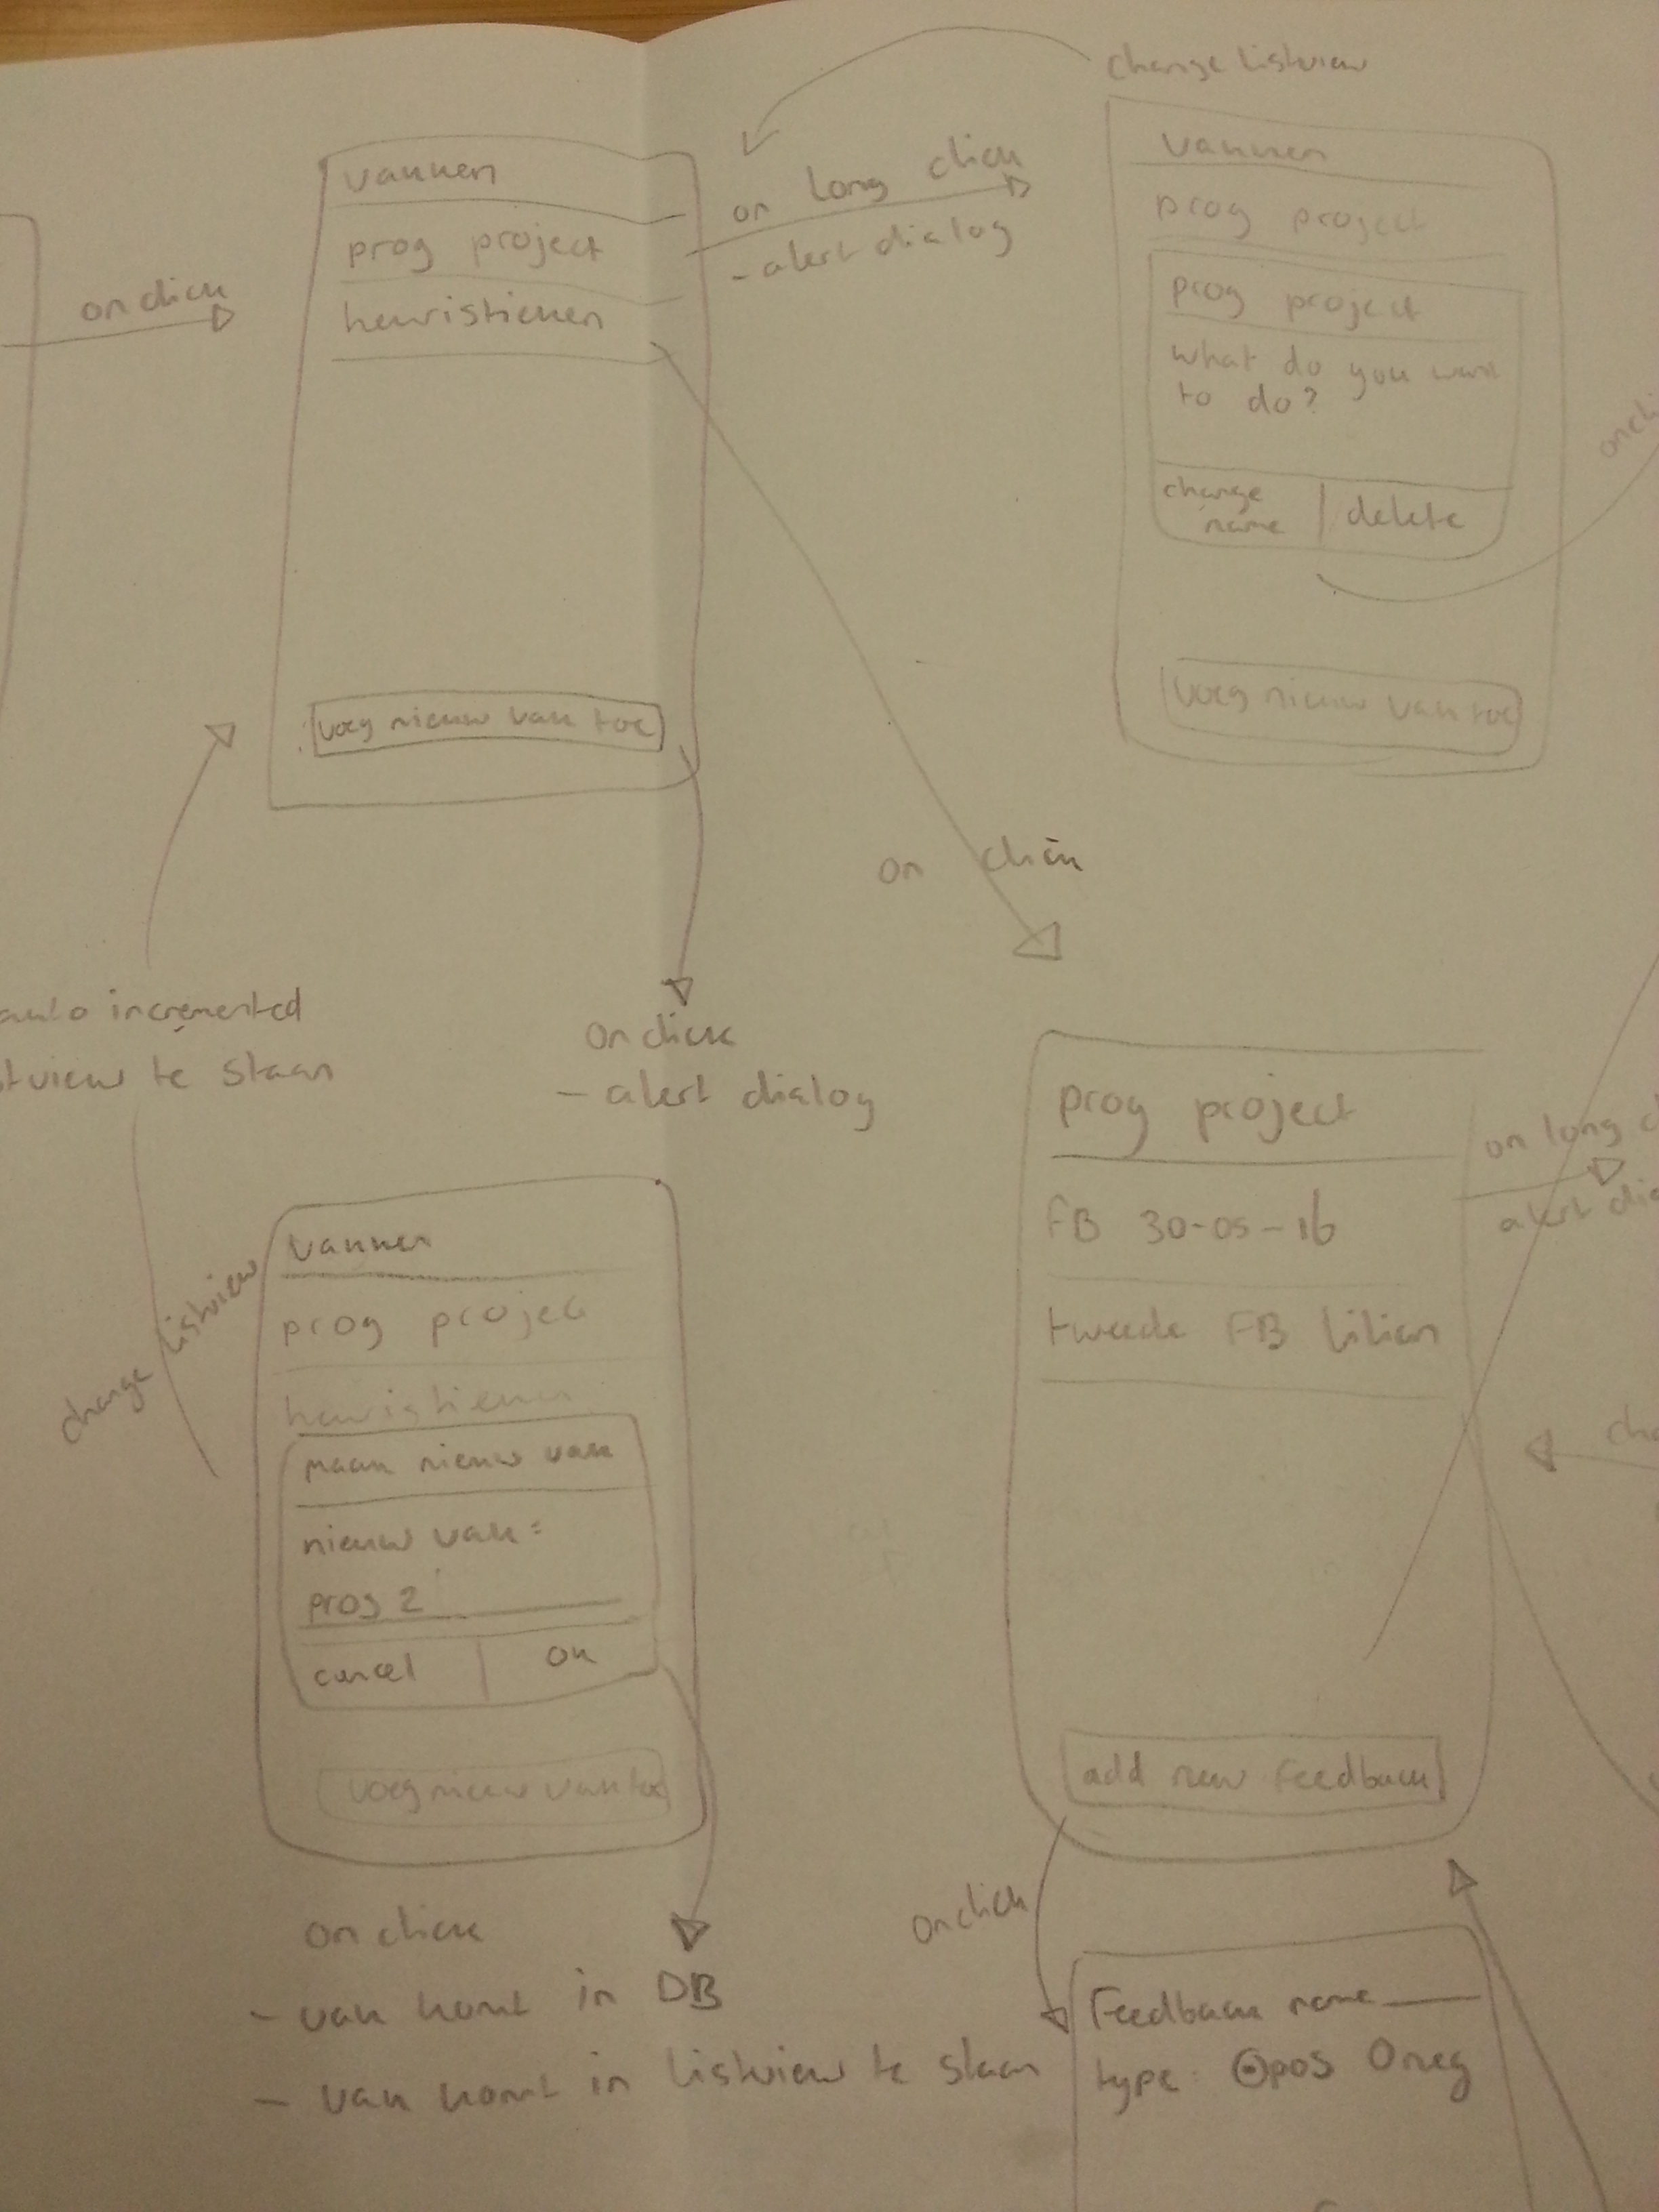 change listview
vakken
prog project
heuristieken
voeg nieuw vak toe
on click
on long click
- alert dialog
vakken
prog project
prog project
what do you want
to do?
change
name
delete
voeg nieuw vak toe
on click
auto incremented
te staan
on click
- alert dialog
change listview
vakken
prog projec
heuristieken
maak nieuw vak
nieuw vak:
prog 2
cancel
ok
voeg nieuw vak toe
on click
- vak komt in DB
- vak komt in listview te staan
prog project
FB 30-05-16
tweede FB lilian
on long
alert
add new feedback
on click
Feedback name
type: pos neg